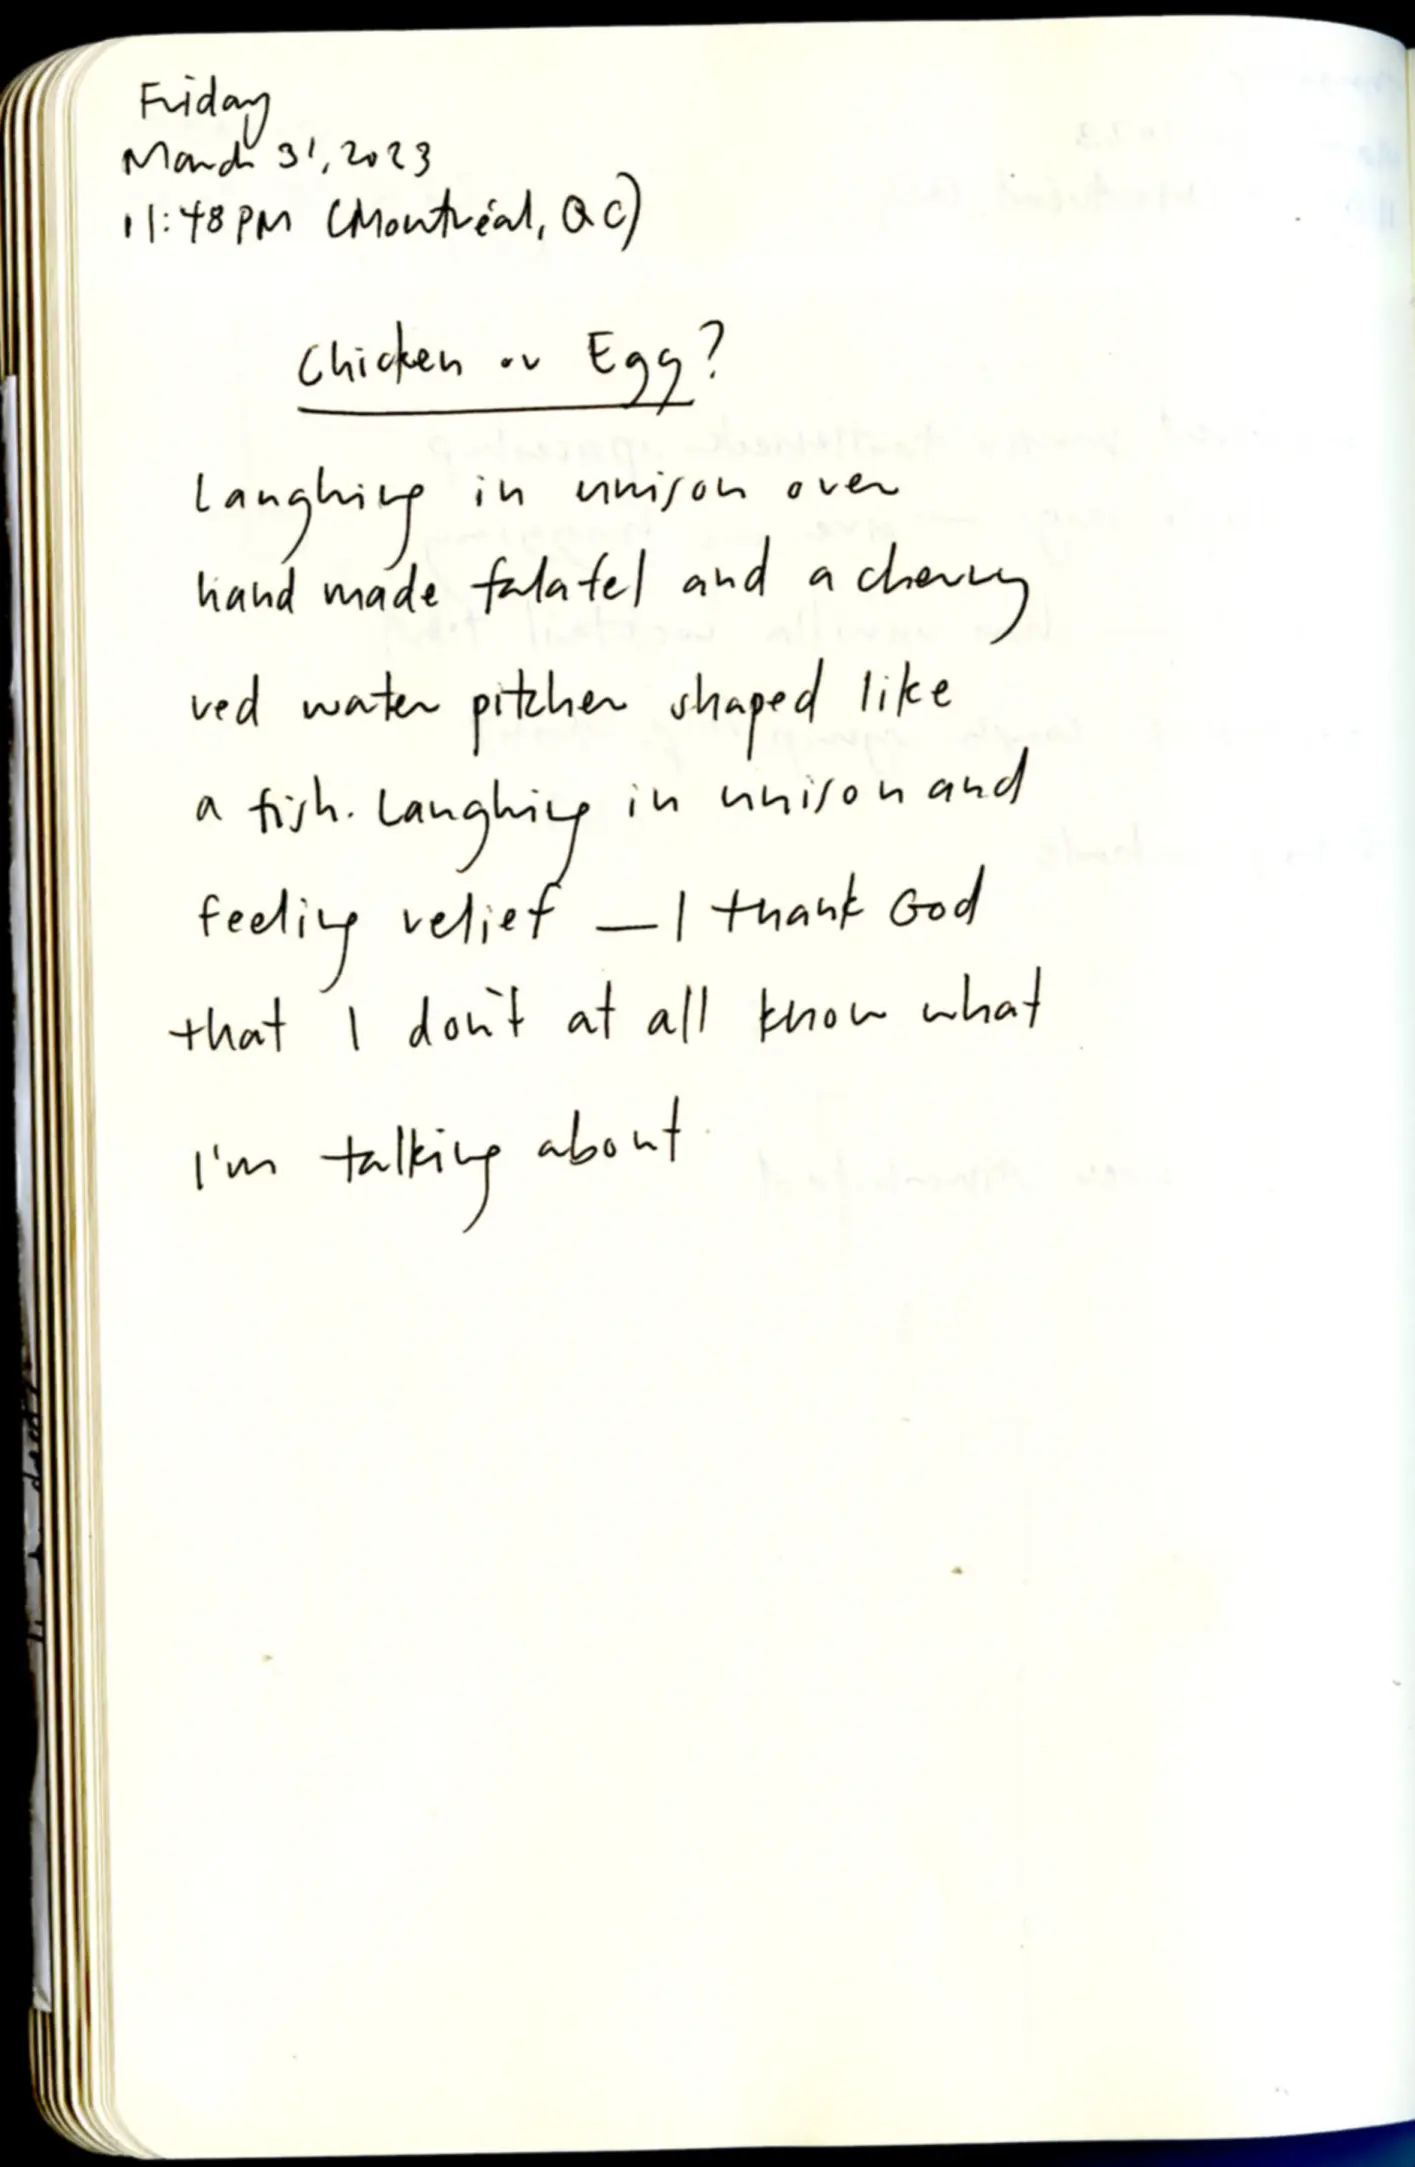 Friday
March 31, 2023
11:48 PM (Montréal, QC)
Chicken or Egg?
Laughing in unison over
hand made falafel and a cherry
red water pitcher shaped like
a fish. Laughing in unison and
feeling relief — I thank God
that I don't at all know what
I'm talking about.